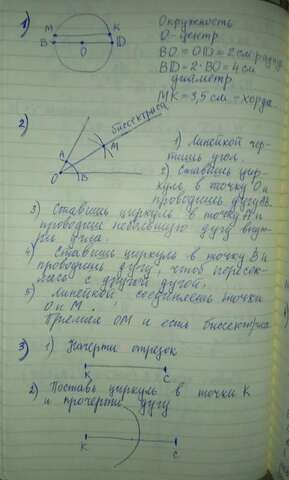 1)
М К
В О D
Окружность
О - центр
ВО = OD = 2 см радиус
BD = 2 · ВО = 4 см
диаметр
МК = 3,5 см - хорда.
2)
биссектриса
А М
О В
1) Линейкой чер-
тишь угол.
2) Ставишь цир-
куль в точку О и
проводишь дугу АВ.
3) Ставишь циркуль в точку А и
проводишь небольшую дугу внут-
ри угла.
4) Ставишь циркуль в точку В и
проводишь дугу, чтоб пересек-
лась с другой дугой.
5) Линейкой соединяешь точки
О и М.
Прямая ОМ и есть биссектриса
3) 1) Начерти отрезок
К С
2) Поставь циркуль в точки К
и прочерти дугу
К С